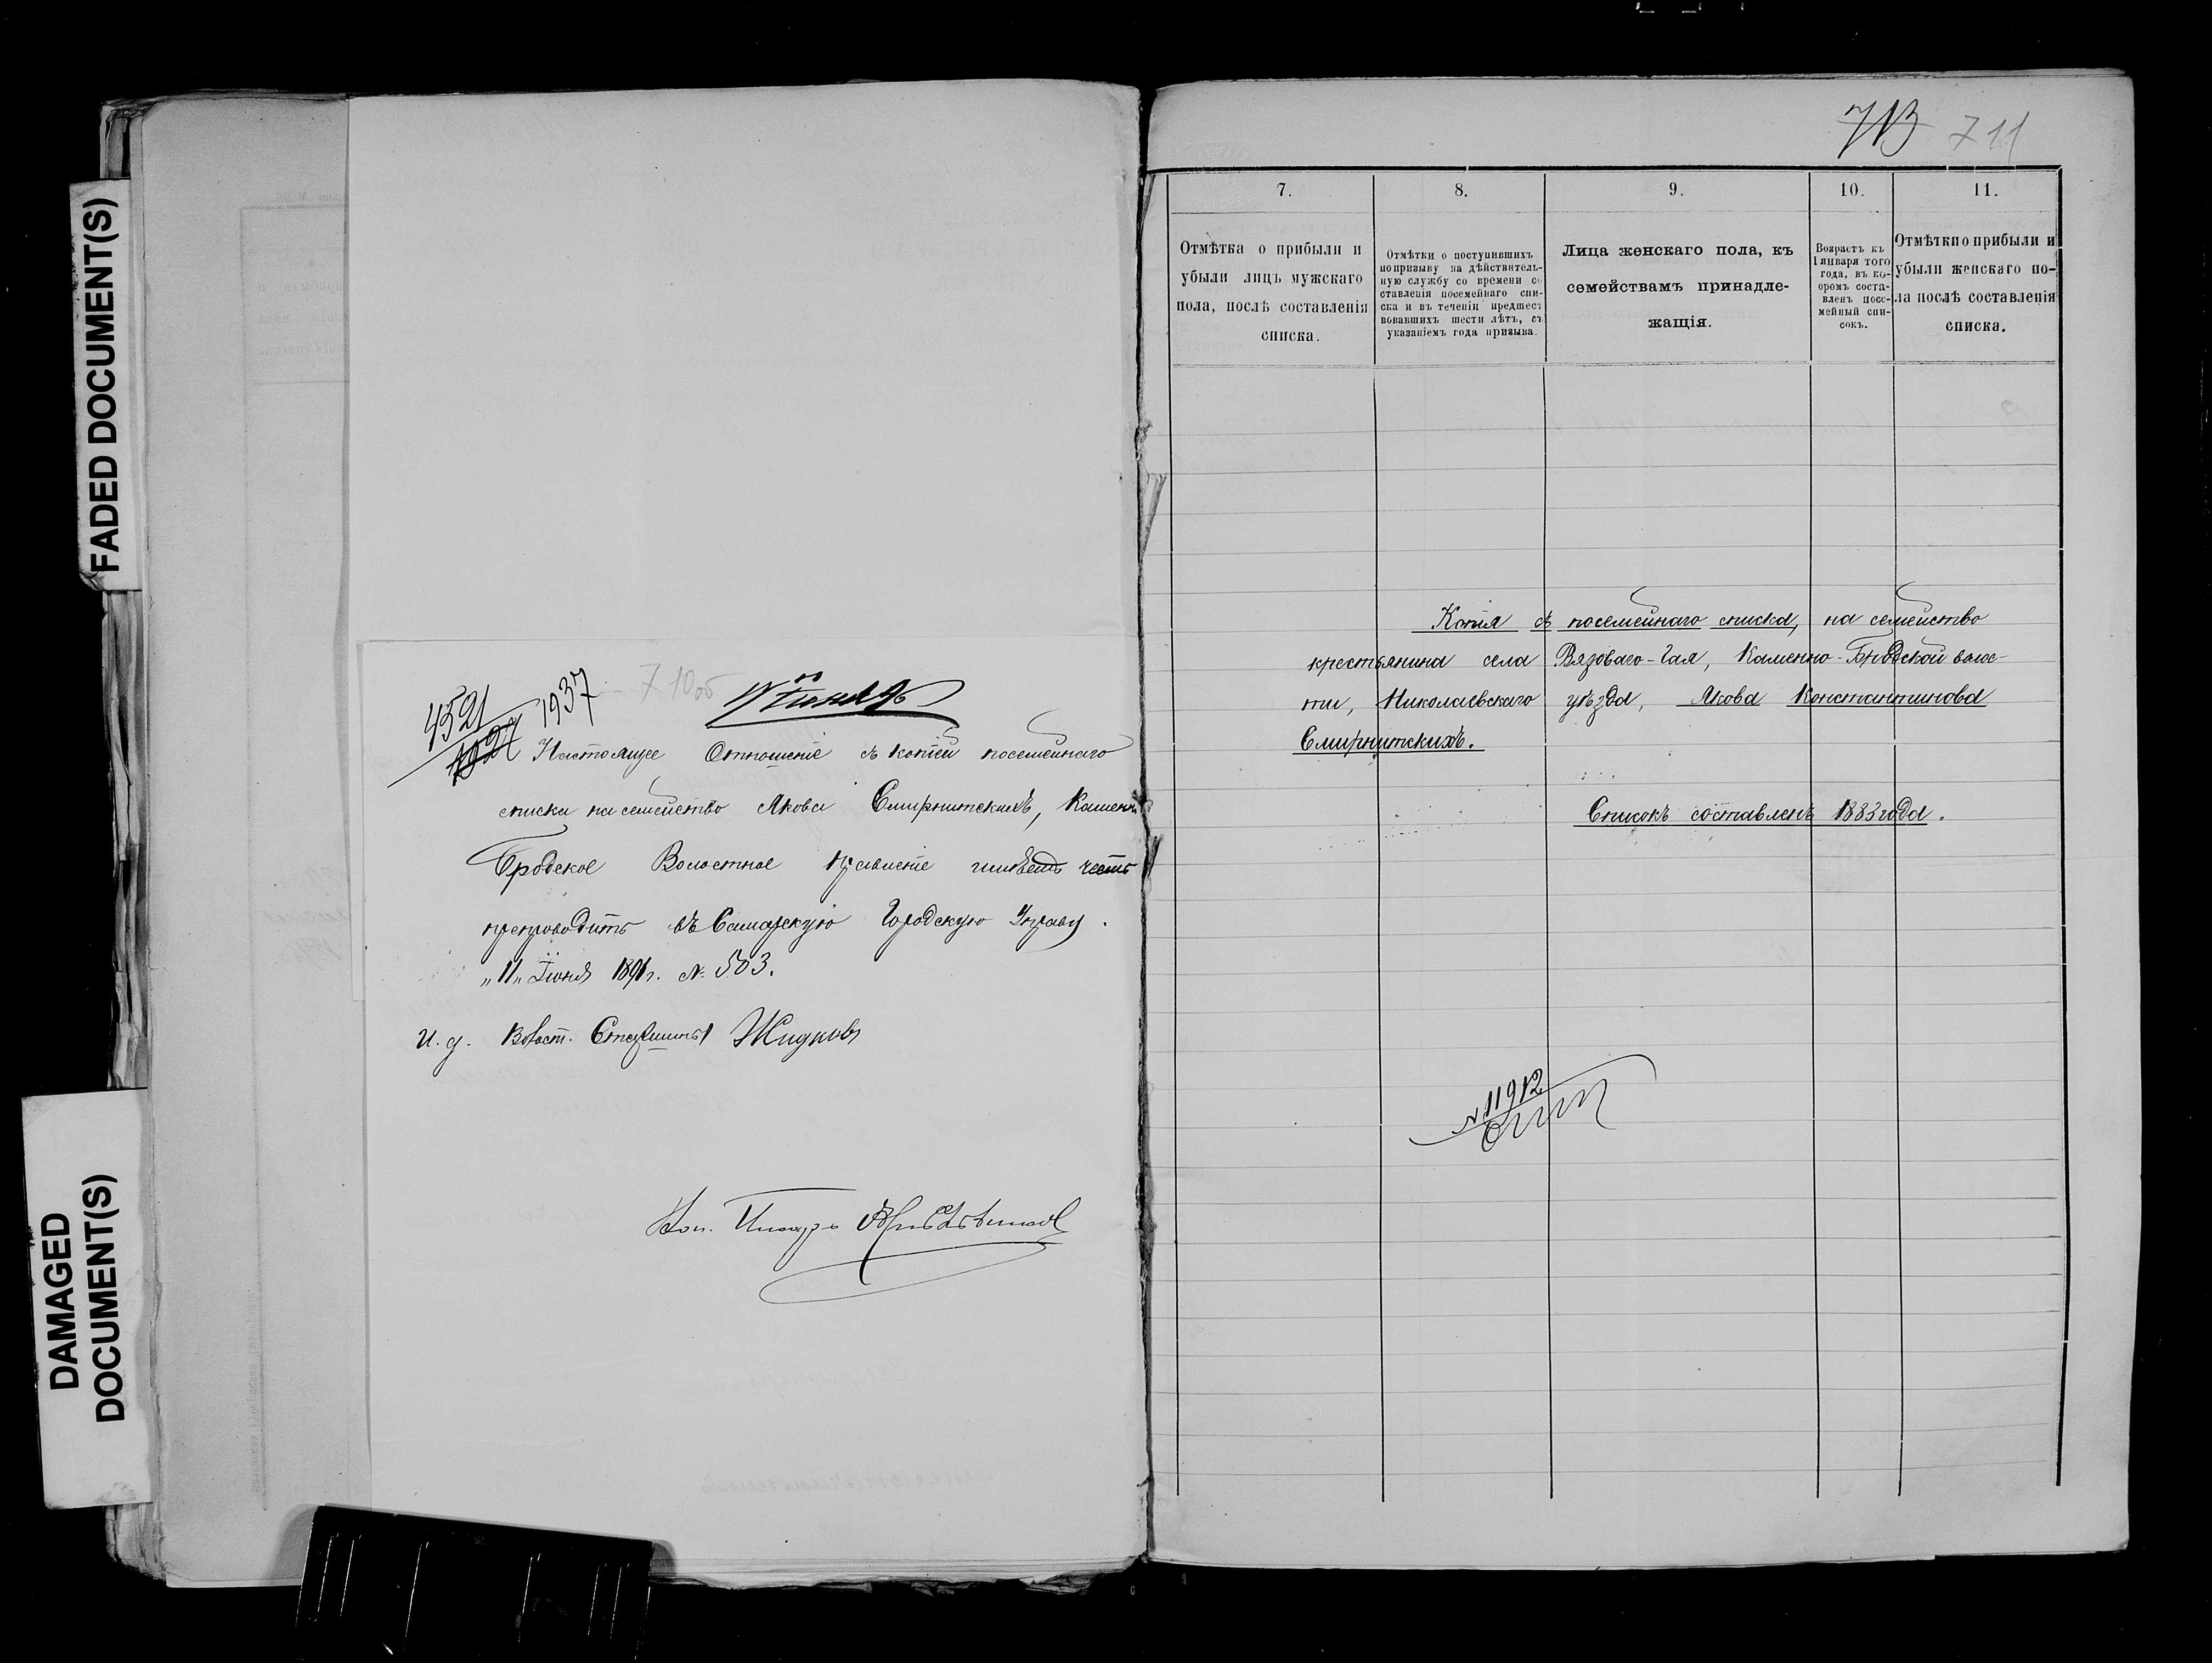 FADED DOCUMENT(S)
DAMAGED
DOCUMENT(S)
4521
1937
710 об
Настоящее Отношеніе съ копіей посемейнаго
списка на семейство Якова Смирнитскихъ, Каменно
Бродское Волостное правленіе имѣетъ честь
препроводить въ Самарскую Городскую Управу.
„11„ Іюня 1891 г. № 503.
И. д. Волост. Старшины Жидковъ
713 711
7.
8.
9.
10.
11.
Отмѣтка о прибыли и
убыли лицъ мужскаго
пола, послѣ составленія
списка.
Отмѣтки о поступившихъ
по призыву на дѣйствитель-
ную службу со времени со
ставленія посемейнаго спи-
ска и въ теченіи предшест
вовавшихъ шести лѣтъ, съ
указаніемъ года призыва.
Лица женскаго пола, къ
семействамъ принадле-
жащія.
Возрастъ къ
1 января того
года, въ ко-
оромъ соста-
вленъ посе-
мейный спи-
сокъ.
Отмѣтки о прибыли и
убыли женскаго по-
ла послѣ составленія
списка.
Копія съ посемейнаго списка, на семейство
крестьянина села Вязоваго-Гая, Каменно-Бродской волос-
ти, Николаевскаго уѣзда, Якова Константинова
Смирнитскихъ.
Списокъ составленъ 1883 года.
№ 11912